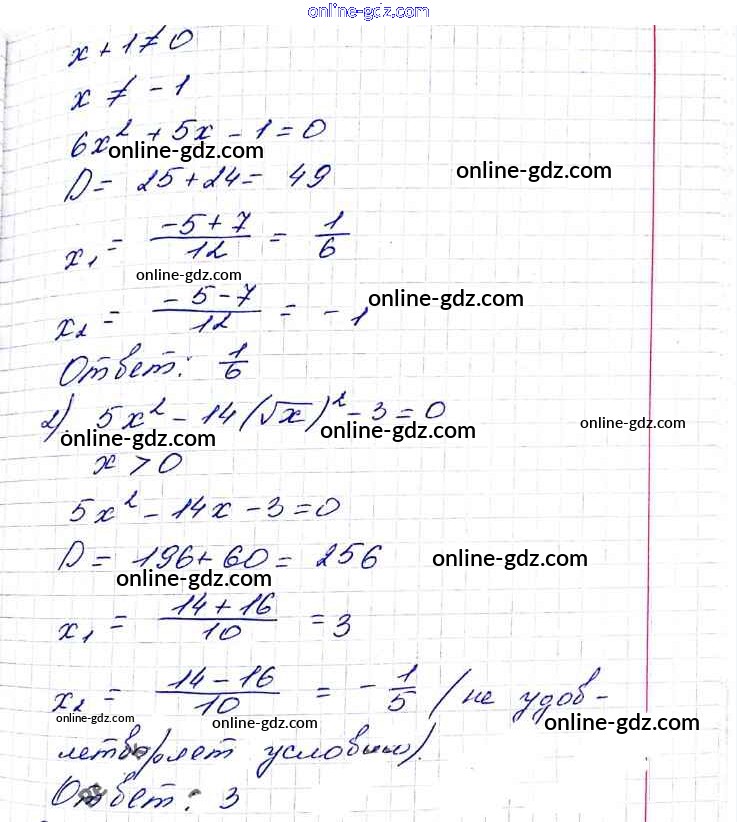 online-gdz.com
x + 1 ≠ 0
x ≠ - 1
6x² + 5x - 1 = 0
online-gdz.com
online-gdz.com
D = 25 + 24 = 49
x₁ = (-5 + 7)/12 = 1/6
online-gdz.com
online-gdz.com
x₂ = (-5 - 7)/12 = - 1
Ответ: 1/6
2) 5x² - 14(√x)² - 3 = 0
online-gdz.com
online-gdz.com
online-gdz.com
x > 0
5x² - 14x - 3 = 0
D = 196 + 60 = 256
online-gdz.com
online-gdz.com
x₁ = (14 + 16)/10 = 3
x₂ = (14 - 16)/10 = - 1/5 (не удов-
online-gdz.com
online-gdz.com
online-gdz.com
летворяет условию).
Ответ: 3